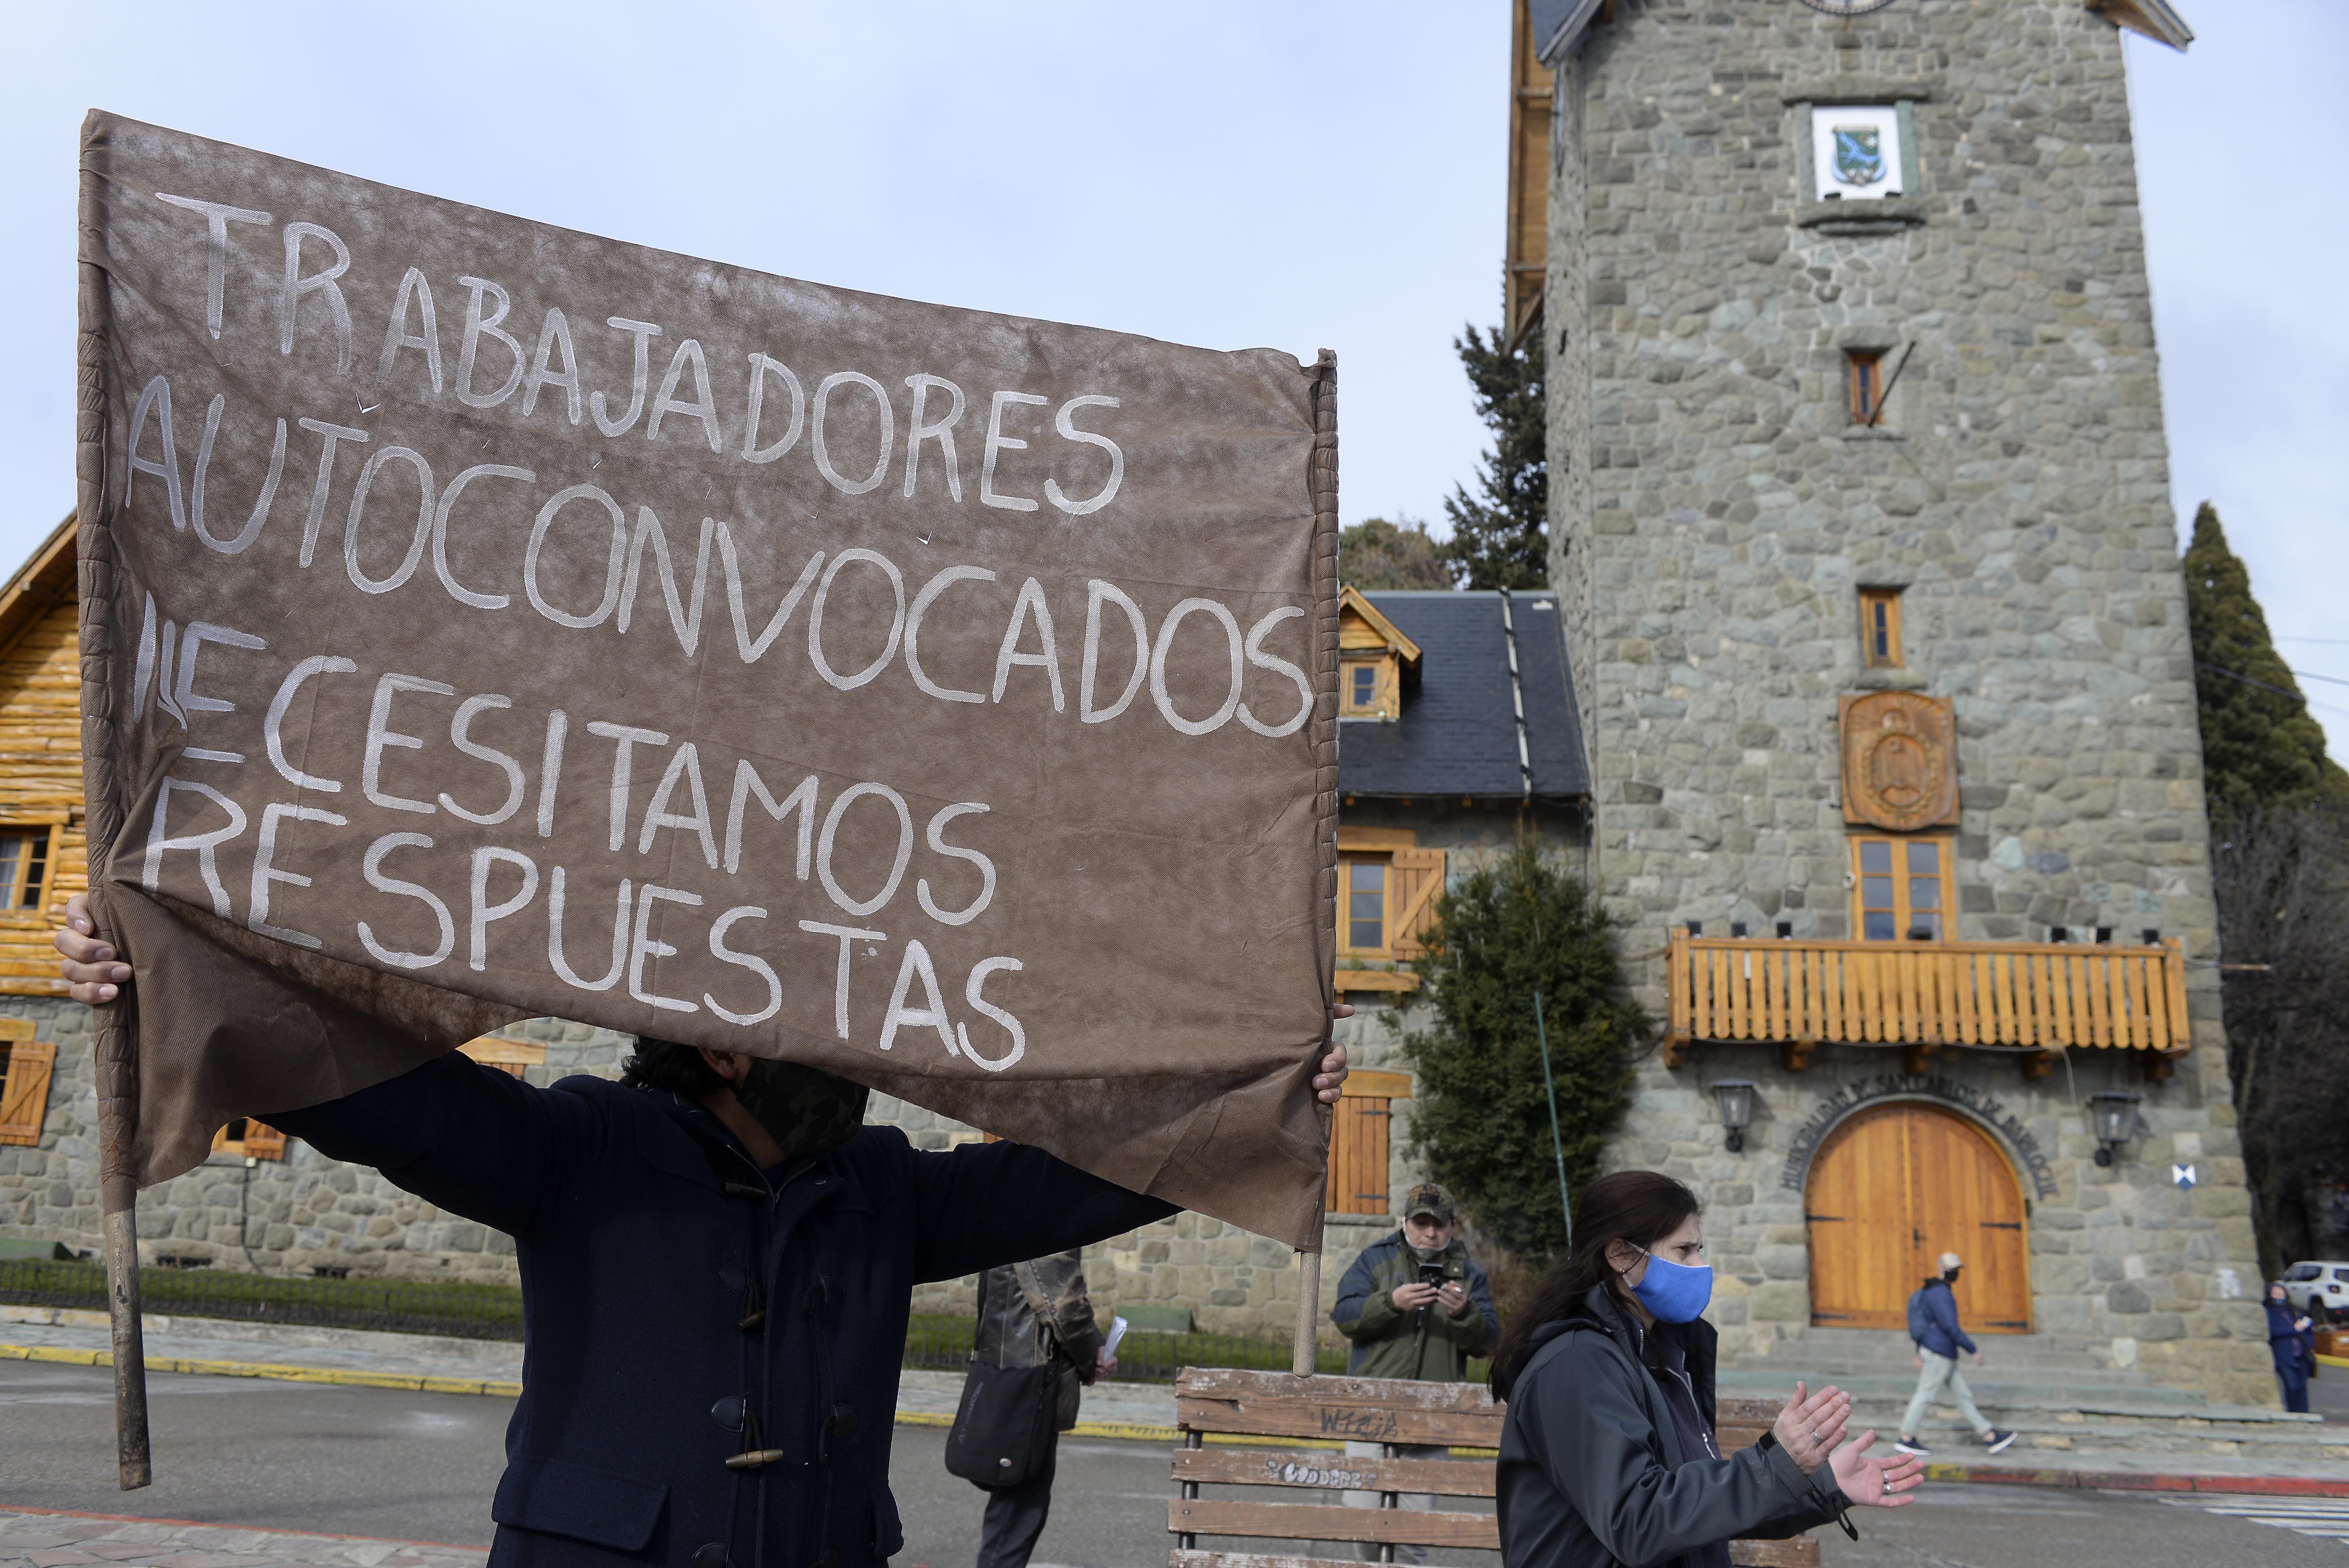 TRABAJADORES
AUTOCONVOCADOS
NECESITAMOS
RESPUESTAS
MUNICIPALIDAD DE SAN CARLOS DE BARILOCHE